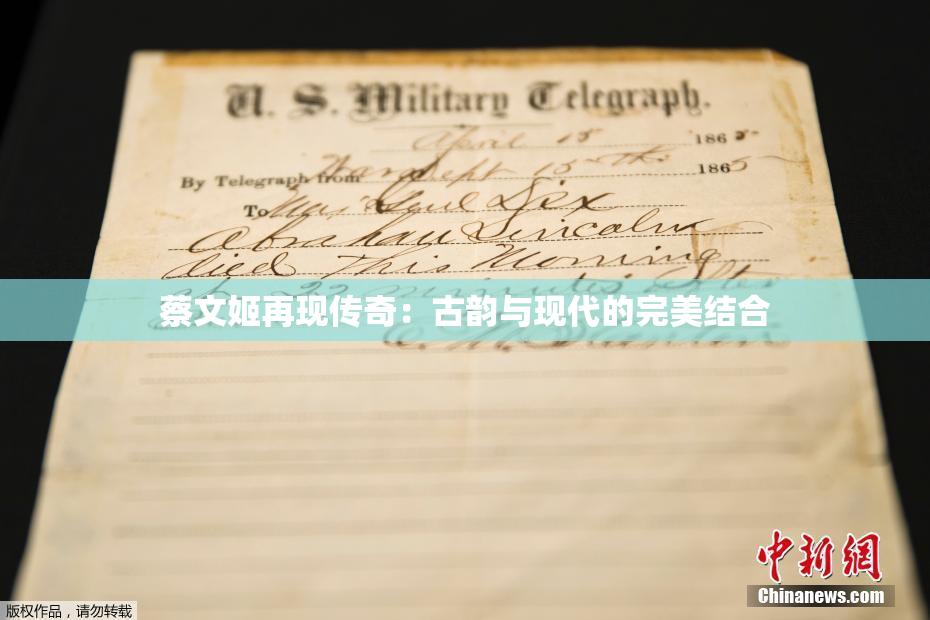 U. S. Military Telegraph.
April 15 1865
By Telegraph from War Dept 15th 1865
To Maj Genl Dix
Abraham Lincoln
died This Morning
at 22 minutes after
蔡文姬再现传奇：古韵与现代的完美结合
E. M. Stanton
中新网
Chinanews.com
版权作品，请勿转载